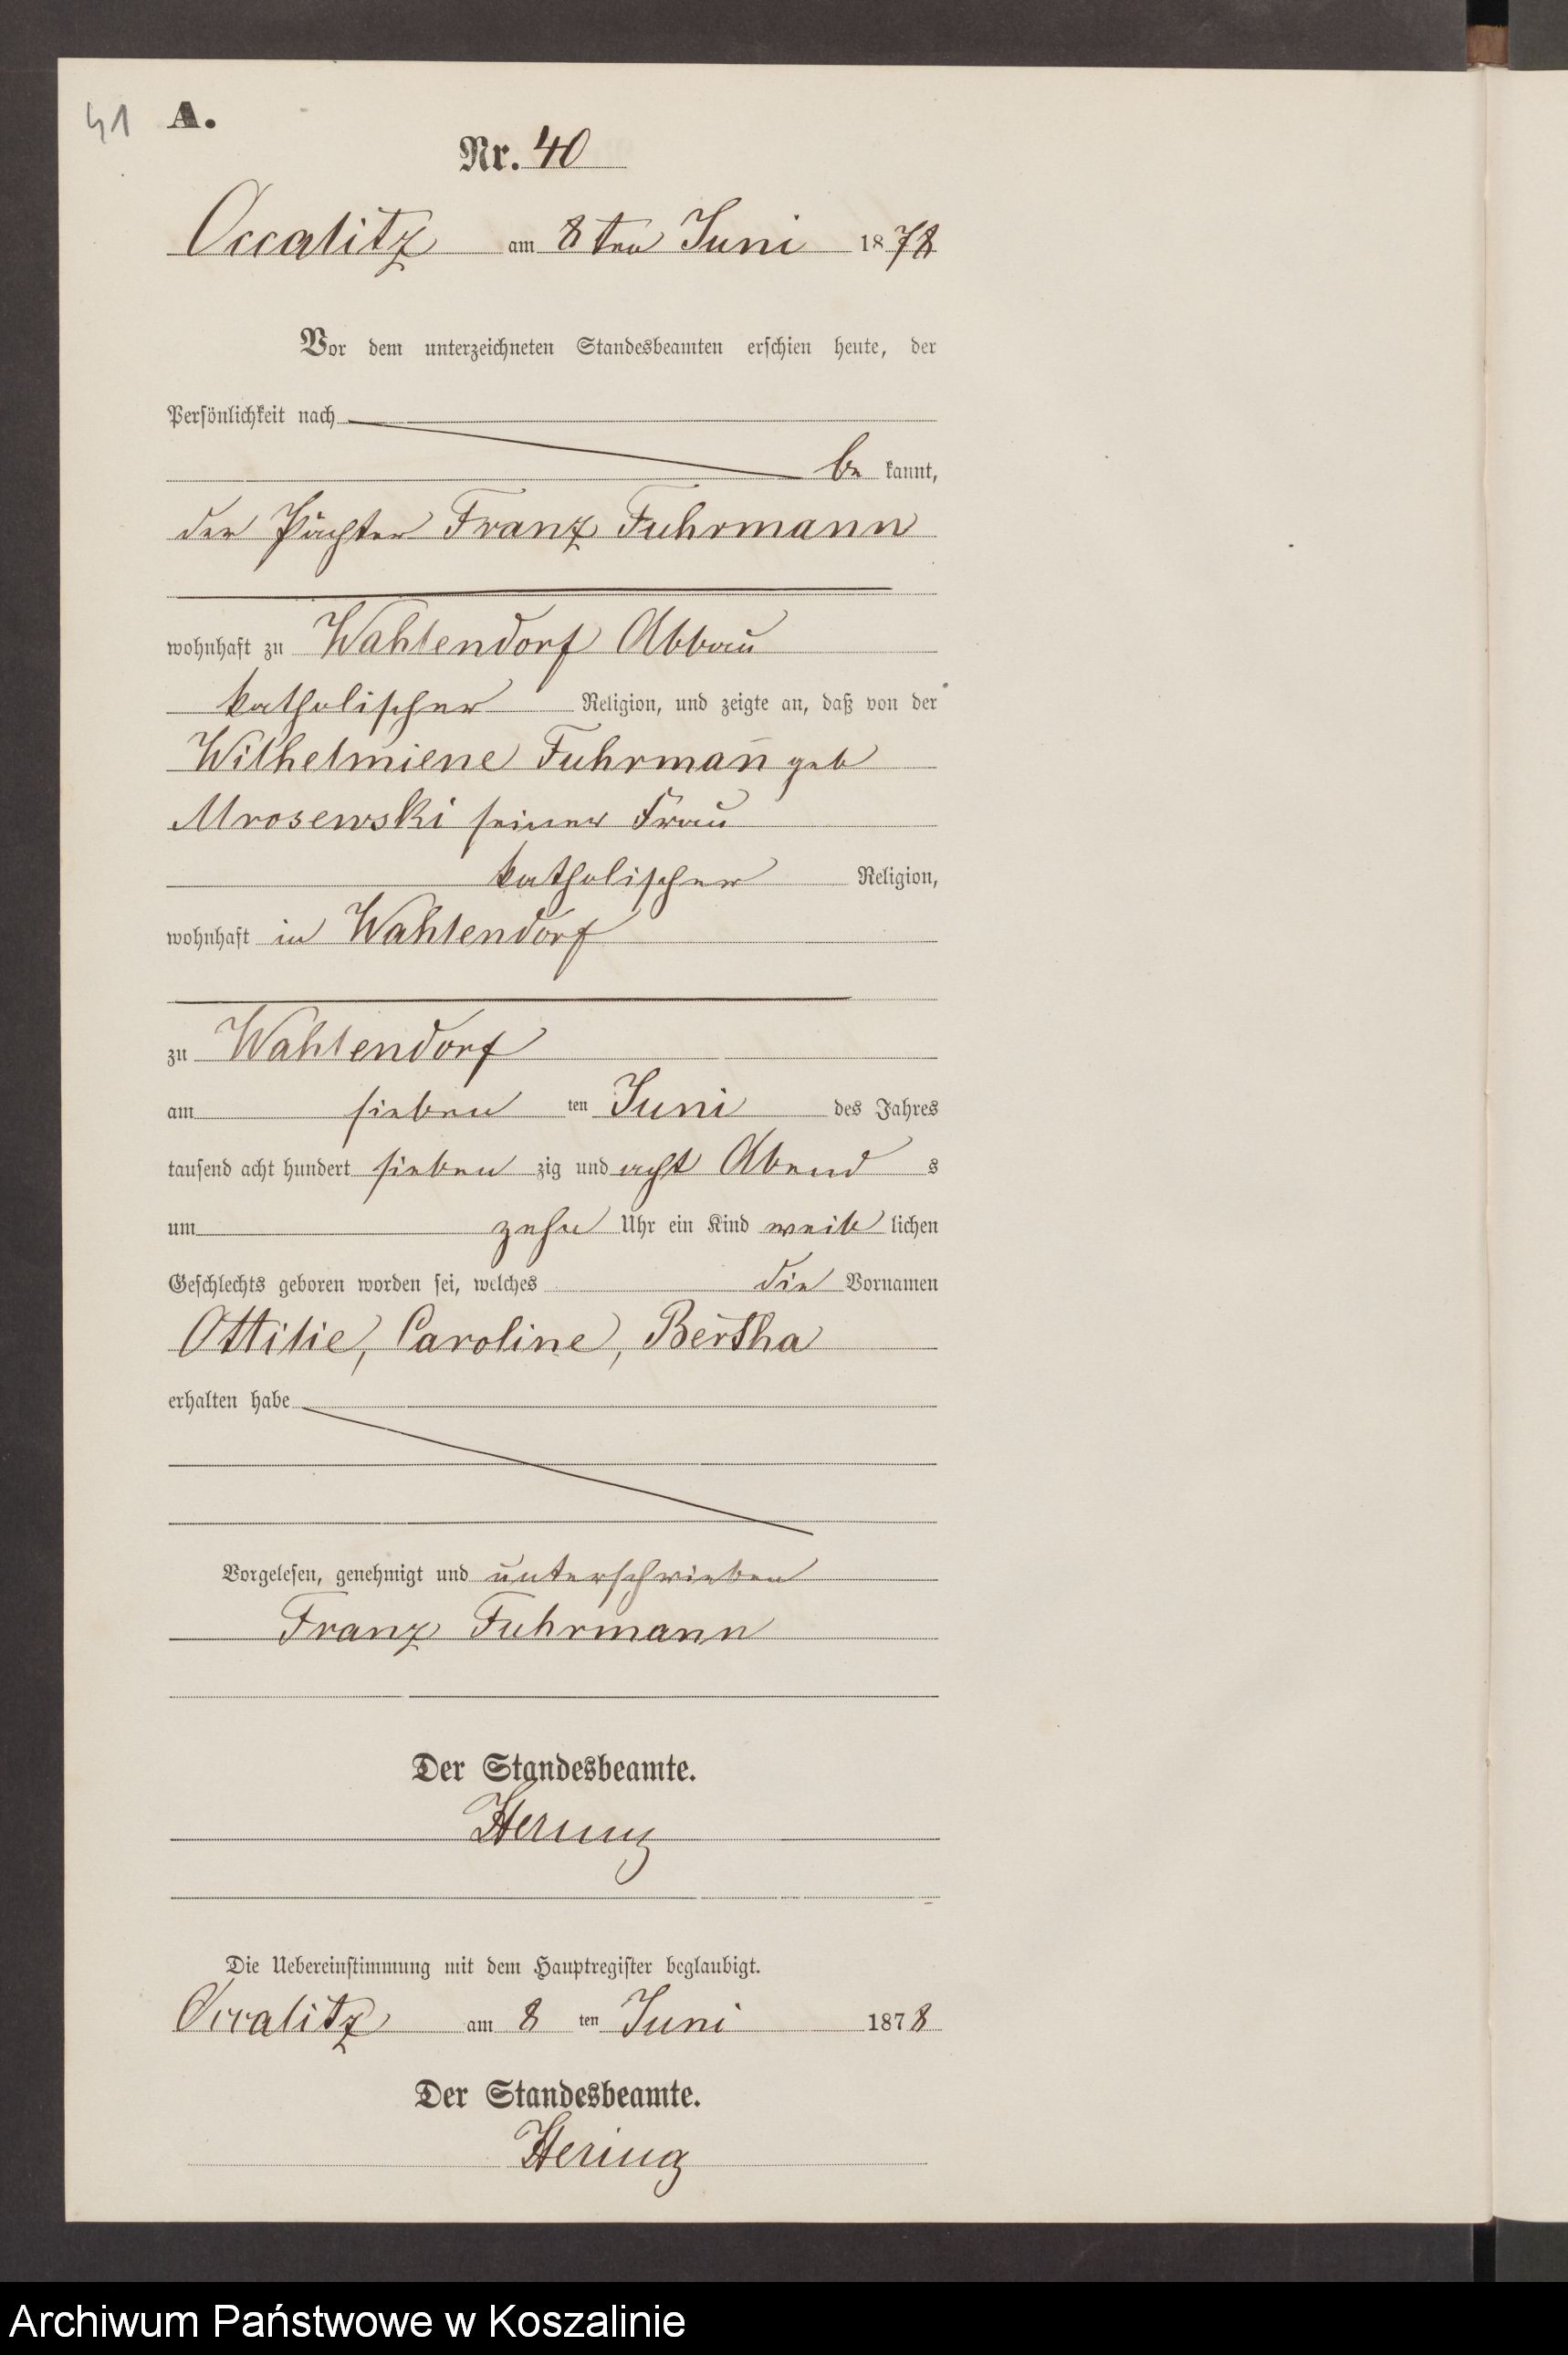 41 A.
Nr. 40
Occalitz am 8ten Juni 1878
Vor dem unterzeichneten Standesbeamten erschien heute, der
Persönlichkeit nach
be kannt,
der Pächter Franz Fuhrmann
wohnhaft zu Wahlendorf Abbau
katholischer Religion, und zeigte an, daß von der
Wilhelmiene Fuhrman̄ geb
Mrosewski seiner Frau
katholischer Religion,
wohnhaft in Wahlendorf
zu Wahlendorf
am sieben ten Juni des Jahres
tausend acht hundert sieben zig und acht Abend s
um zehn Uhr ein Kind weib lichen
Geschlechts geboren worden sei, welches die Vornamen
Ottilie, Caroline, Bertha
erhalten habe
Vorgelesen, genehmigt und unterschrieben
Franz Fuhrmann
Der Standesbeamte.
Hering
Die Uebereinstimmung mit dem Hauptregister beglaubigt.
Occalitz am 8 ten Juni 1878
Der Standesbeamte.
Hering
Archiwum Państwowe w Koszalinie